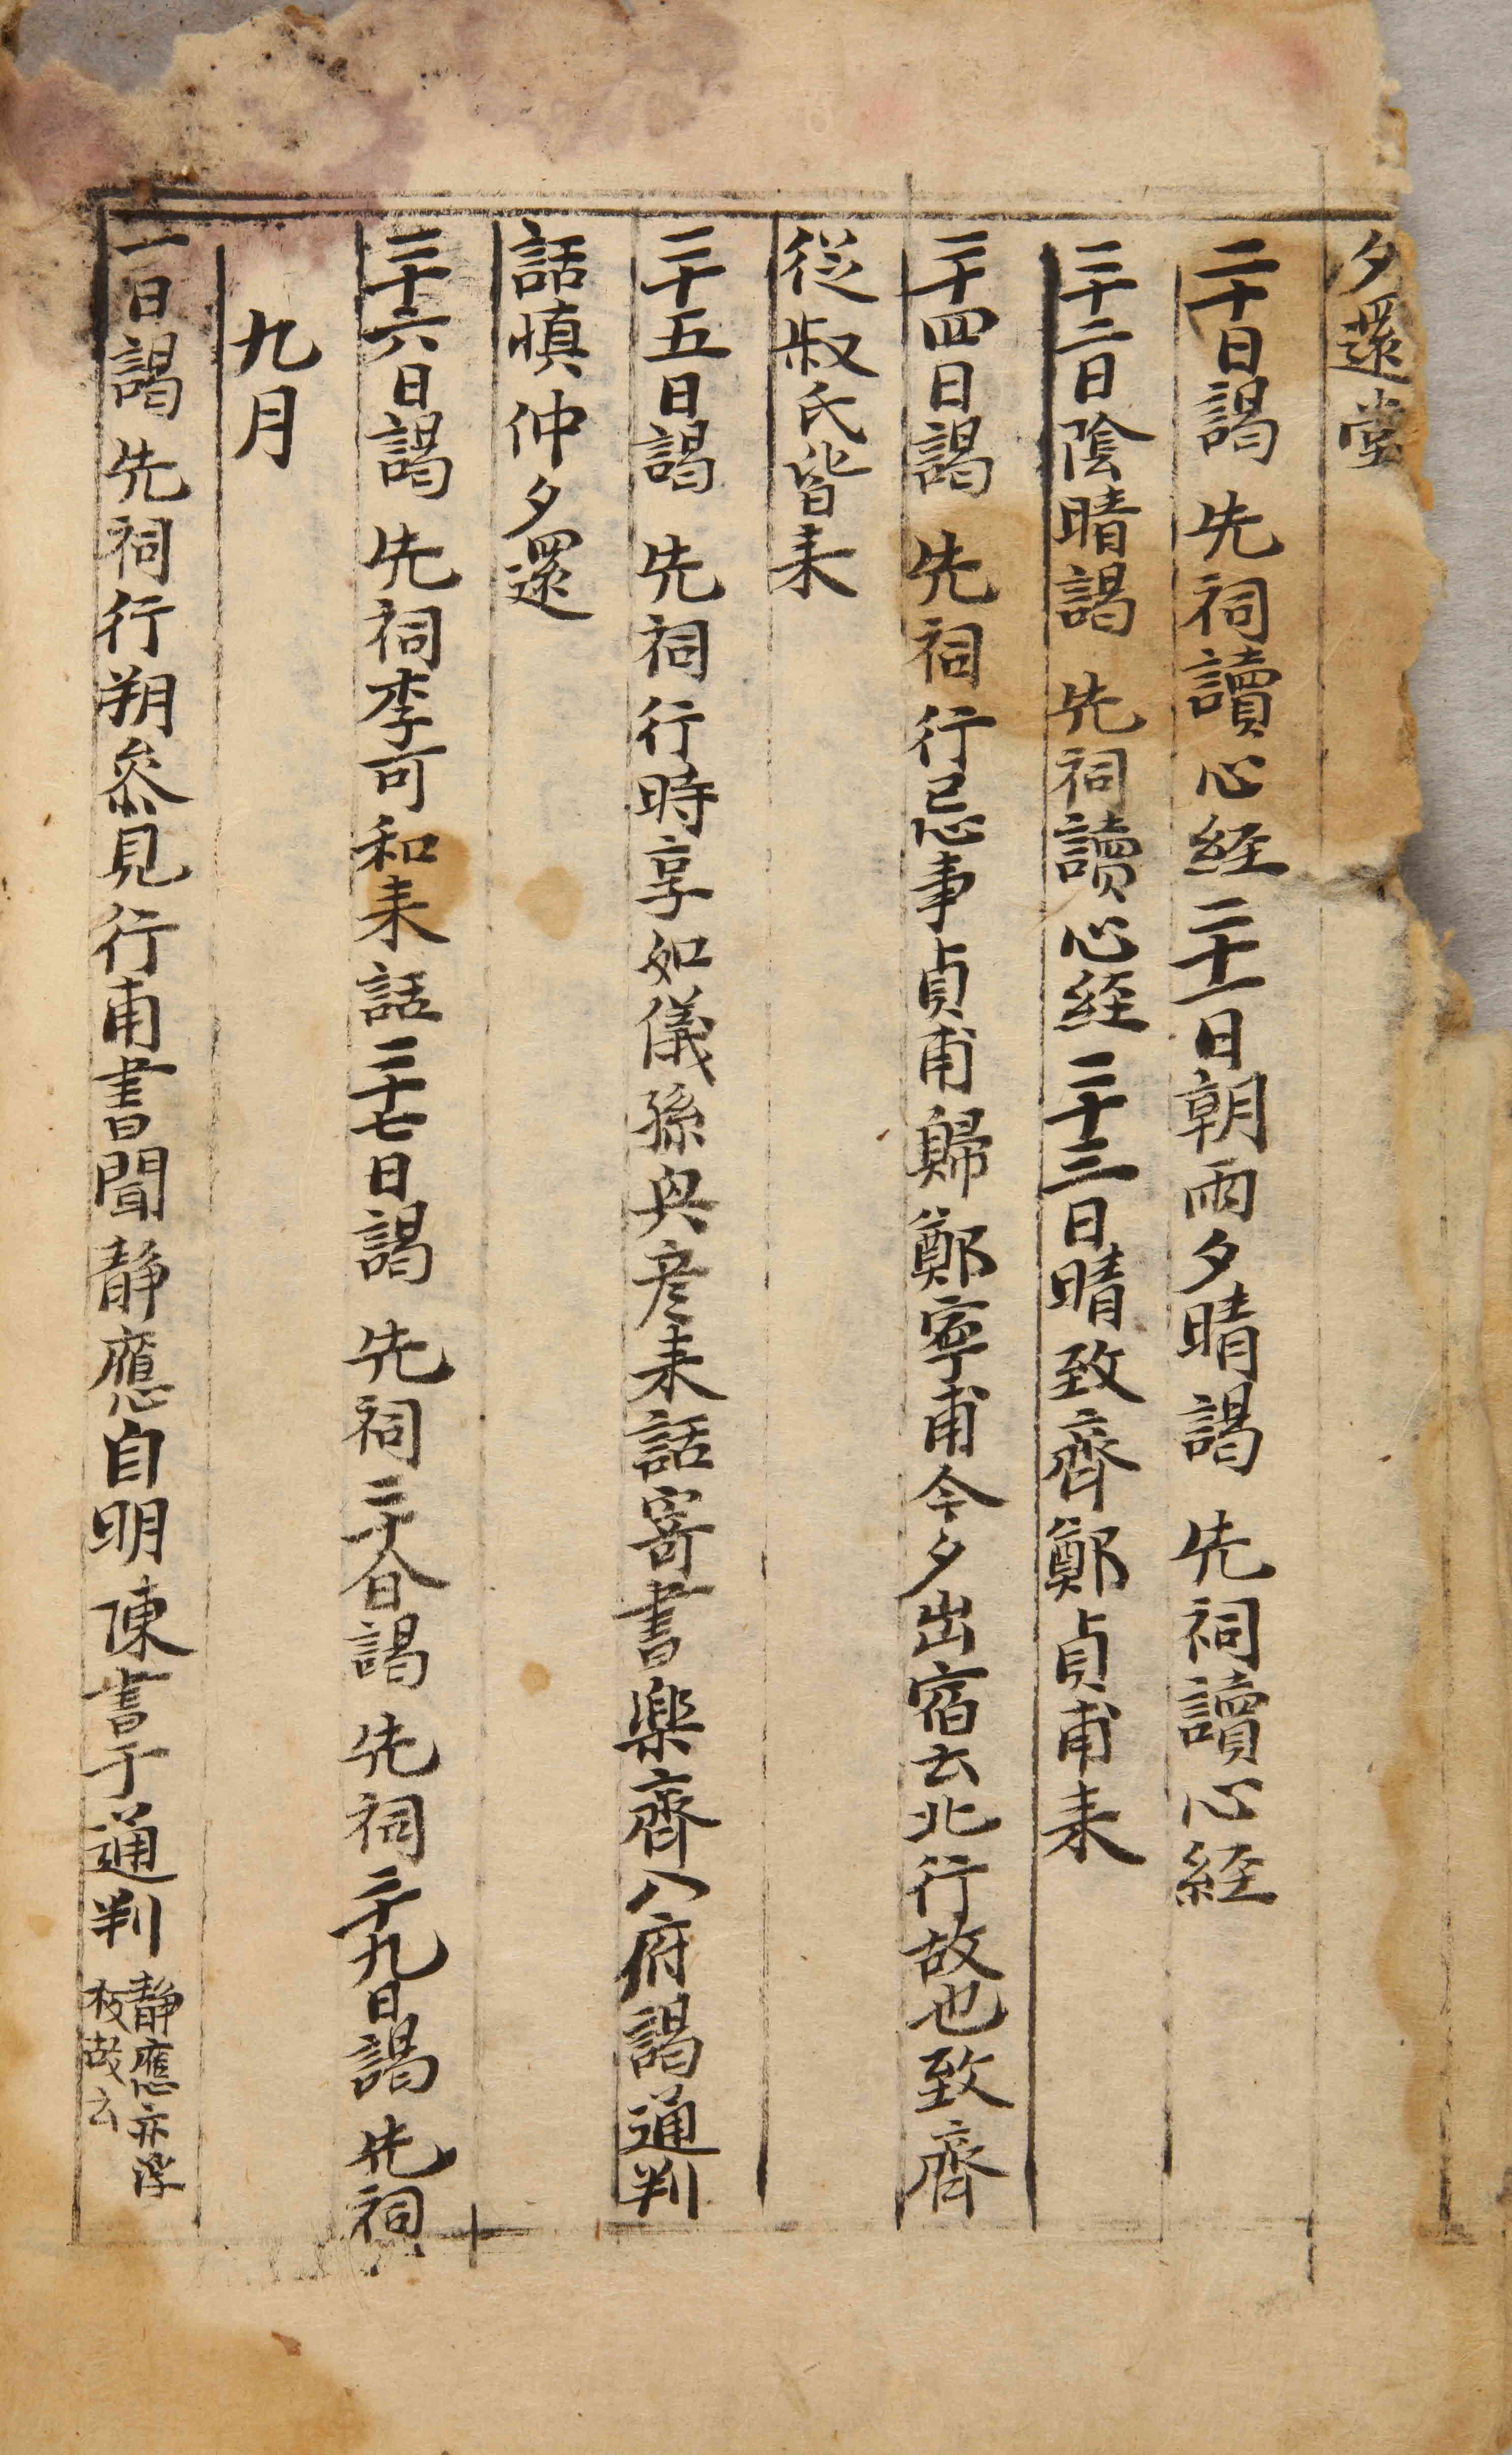 夕還堂
二十日謁 先祠讀心經二十一日朝雨夕晴謁 先祠讀心経
二十二日陰晴謁 先祠讀心経二十三日晴致齊鄭貞甫来
二十四日謁 先祠行忌事貞甫歸鄭寧甫今夕出宿云北行故也致齊
從叔氏皆来
二十五日謁 先祠行時享如儀孫興彦来話寄書樂齊入府謁通判
話愼仲夕還
二十六日謁 先祠李可和来話二十七日謁 先祠二十八日謁 先祠二十九日謁 先祠
九月
一日謁 先祠行朔叅見行甫書聞靜應自明陳書于通判
靜應亦澤